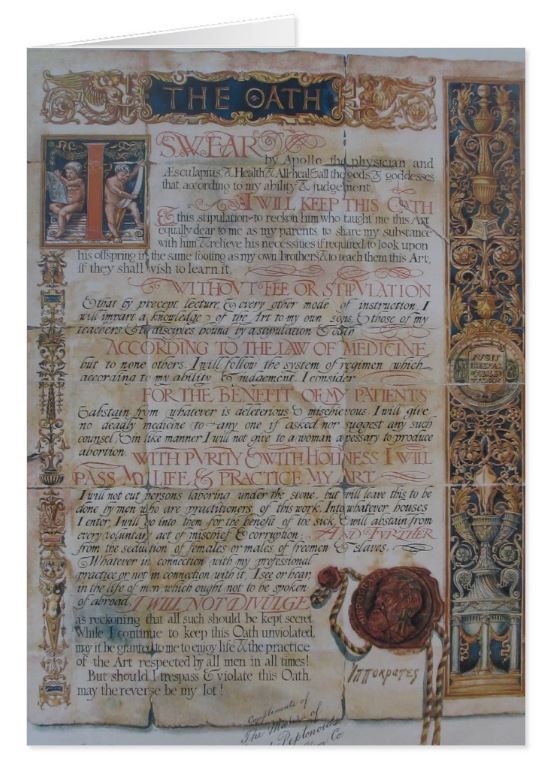 THE OATH
I SWEAR
by Apollo the physician and
Æsculapius & Health & All-heal & all the gods & goddesses
that according to my ability & judgement
I WILL KEEP THIS OATH
& this stipulation-to reckon him who taught me this Art
equally dear to me as my parents to share my substance
with him & relieve his necessities if required to look upon
his offspring in the same footing as my own brothers & to teach them this Art,
if they shall wish to learn it
WITHOUT FEE OR STIPULATION
& that by precept lecture & every other mode of instruction, I
will impart a knowledge of the Art to my own sons & those of my
teachers & to disciples bound by a stipulation & oath
ACCORDING TO THE LAW OF MEDICINE
but to none others I will follow the system of regimen which
according to my ability & judgement I consider
FOR THE BENEFIT OF MY PATIENTS
& abstain from whatever is deleterious & mischievous I will give
no deadly medicine to any one if asked nor suggest any such
counsel & in like manner I will not give to a woman a pessary to produce
abortion WITH PVRITY & WITH HOLINESS I WILL
PASS MY LIFE & PRACTICE MY ART
I will not cut persons laboring under the stone, but will leave this to be
done by men who are practitioners of this work. Into whatever houses
I enter I will go into them for the benefit of the sick & will abstain from
every voluntary act of mischief & corruption AND FURTHER
from the seduction of females or males of freemen & slaves.
Whatever in connection with my professional
practice or not in connection with it, I see or hear,
in the life of men which ought not to be spoken
of abroad, I WILL NOT DIVULGE
as reckoning that all such should be kept secret
While I continue to keep this Oath unviolated,
may it be granted to me to enjoy life & the practice
of the Art respected by all men in all times!
But should I trespass & violate this Oath,
may the reverse be my lot!
Ιπποκρατες
Compliments of
The Makers of
Peptonoids
Co.